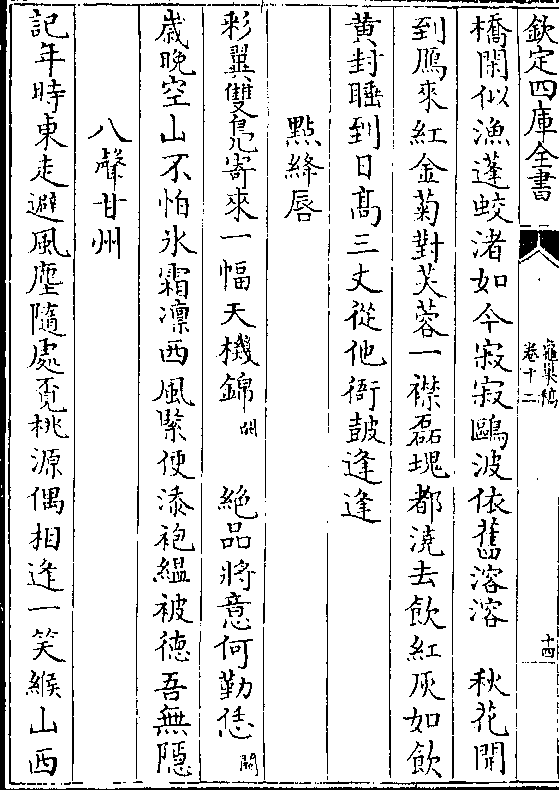 欽定四庫全書
龜巢稿
卷十二
十四
橋閑似漁蓬蛟渚如今寂寂鷗波依舊溶溶　秋花開
到鴈來紅金菊對芙蓉一襟磊塊都澆去飲紅灰如飲
黄封睡到日髙三丈從他衙鼓逢逢
點絳唇
彩翼雙鳬寄來一幅天機錦　絶品將意何勤恁
歲晚空山不怕氷霜凛西風緊便添袍緼被德吾無隱
八聲甘州
記年時東走避風塵隨處覓桃源偶相逢一笑緱山西